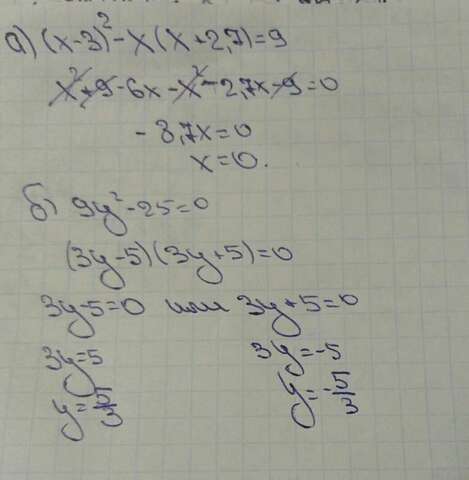 а) (x-3)²-x(x+2,7)=9
x²+9-6x-x²-2,7x-9=0
-8,7x=0
x=0.
б) 9y²-25=0
(3y-5)(3y+5)=0
3y-5=0 или 3y+5=0
3y=5 3y=-5
y=5/3 y=-5/3